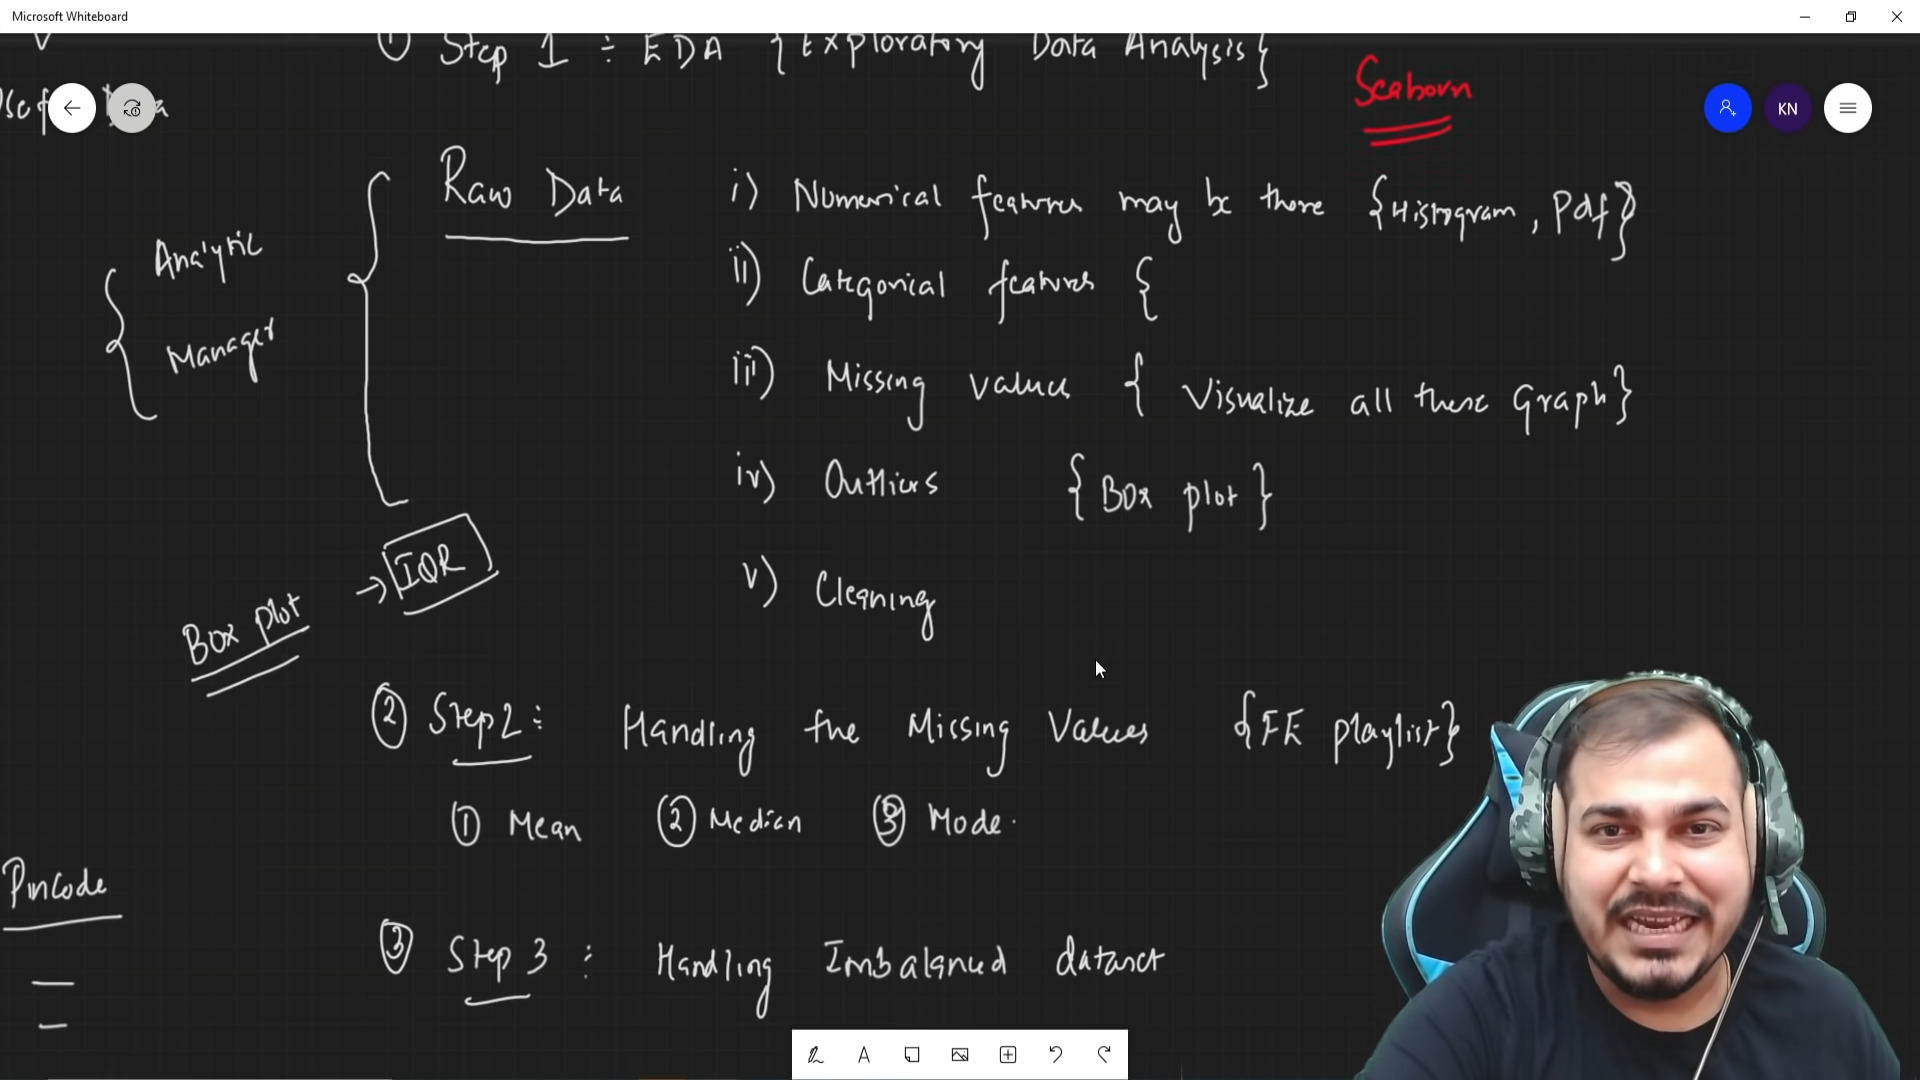 Microsoft Whiteboard
① Step 1 ÷ EDA {Exploratory Data Analysis}
Seaborn
KN
Raw Data
i) Numerical features may be there {Histogram, Pdf}
Analytic
Manager
ii) Categorical features {
iii) Missing values { Visualize all these Graph}
iv) Outliers {Box plot}
Box plot → IQR
v) Cleaning
② Step 2 : Handling the Missing Values {FE playlist}
① Mean ② Median ③ Mode.
Pincode
③ Step 3 : Handling Imbalanced dataset